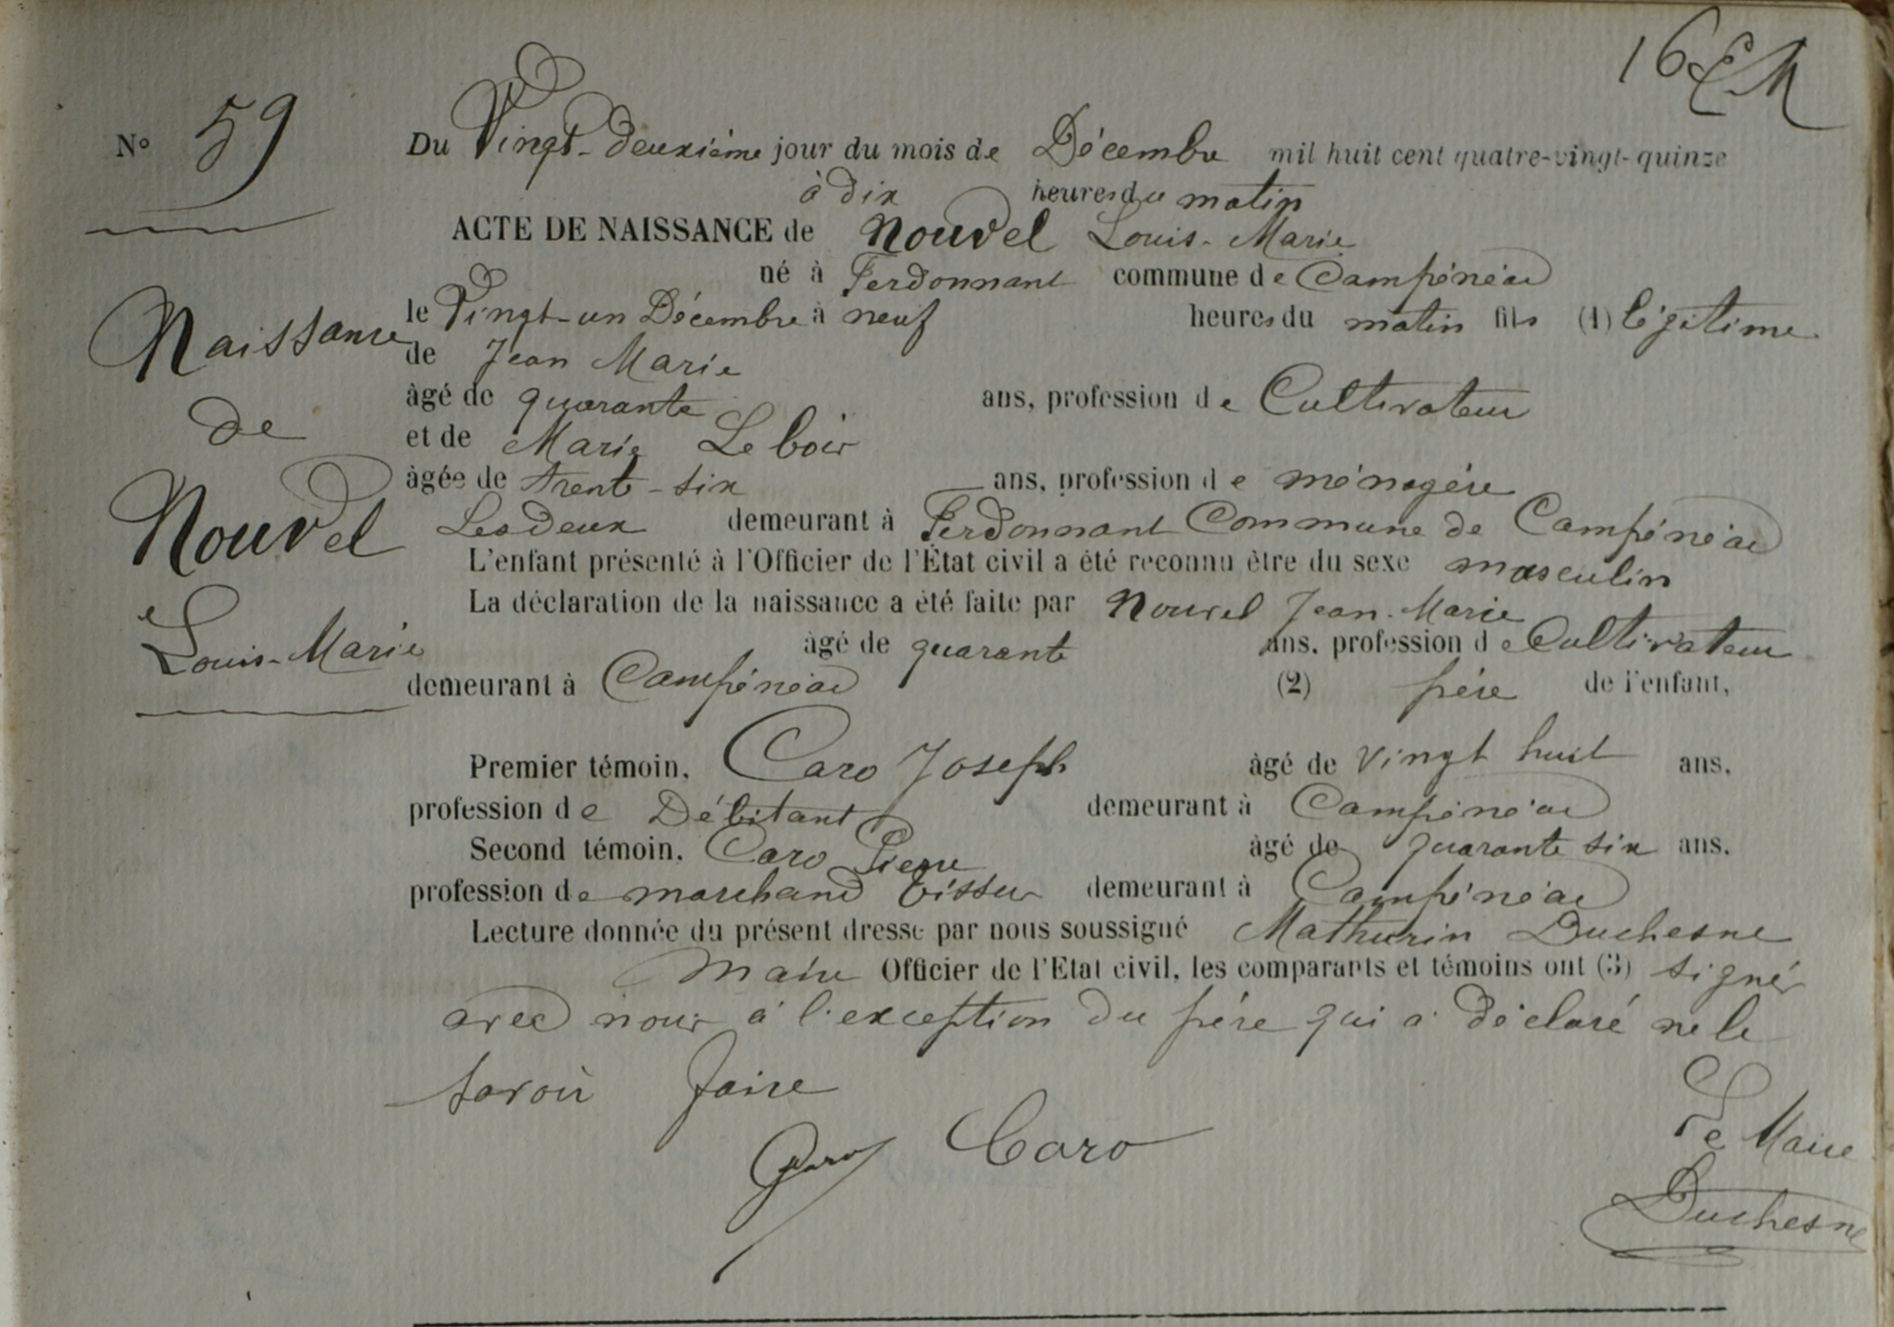 16
N° 59
Du Vingt-deuxième jour du mois de Décembre mil huit cent quatre-vingt-quinze
à dix heures du matin
ACTE DE NAISSANCE de Nouvel Louis-Marie
né à Ferdonnant commune de Campénéac
le Vingt-un Décembre à neuf heures du matin fils (1) légitime
de Jean Marie
âgé de quarante ans, profession de Cultivateur
et de Marie Le boir
âgée de trente-six ans, profession de ménagère
Les deux demeurant à Ferdonnant Commune de Campénéac
L'enfant présenté à l'Officier de l'État civil a été reconnu être du sexe masculin
La déclaration de la naissance a été faite par Nouvel Jean-Marie
âgé de quarante ans, profession de Cultivateur
demeurant à Campénéac (2) père de l'enfant,
Premier témoin, Caro Joseph âgé de vingt huit ans,
profession de Débitant demeurant à Campénéac
Second témoin, Caro Pierre âgé de quarante six ans,
profession de marchand tissu demeurant à Campénéac
Lecture donnée du présent dressé par nous soussigné Mathurin Duchesne
Maire Officier de l'Etat civil, les comparants et témoins ont (3) signé
avec nous à l'exception du père qui a déclaré ne le
savoir faire
Caro
Le Maire
Duchesne
Naissance
de
Nouvel
Louis-Marie